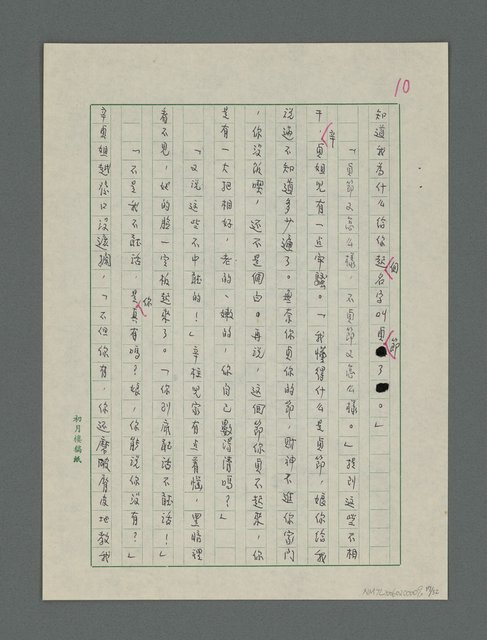 10
知道我為什么給你起個名字叫貞節了。」
「貞節又怎么樣，不貞節又怎么樣。」提到這些不相
干，辛貞姐兒有一些牢騷。「我懂得什么是貞節，娘你給我
說過不知道多少遍了。無奈你貞你的節，財神不進你家門
，你沒飯喫，還不是個白。再說，這個節你貞不起來，你
是有一大把相好，老的、嫩的，你自己數得清嗎？」
「又說這些不中聽的！」辛枝兒家有点着惱，黑暗裡
看不見，她的臉一定板起來了。「你到底聽話不聽話！」
「不是我不聽話，是你真有嗎？娘，你能說你沒有？」
辛貞姐越發口沒遮攔，「不但你有，你還磨破脣皮地教我
初月樓稿紙